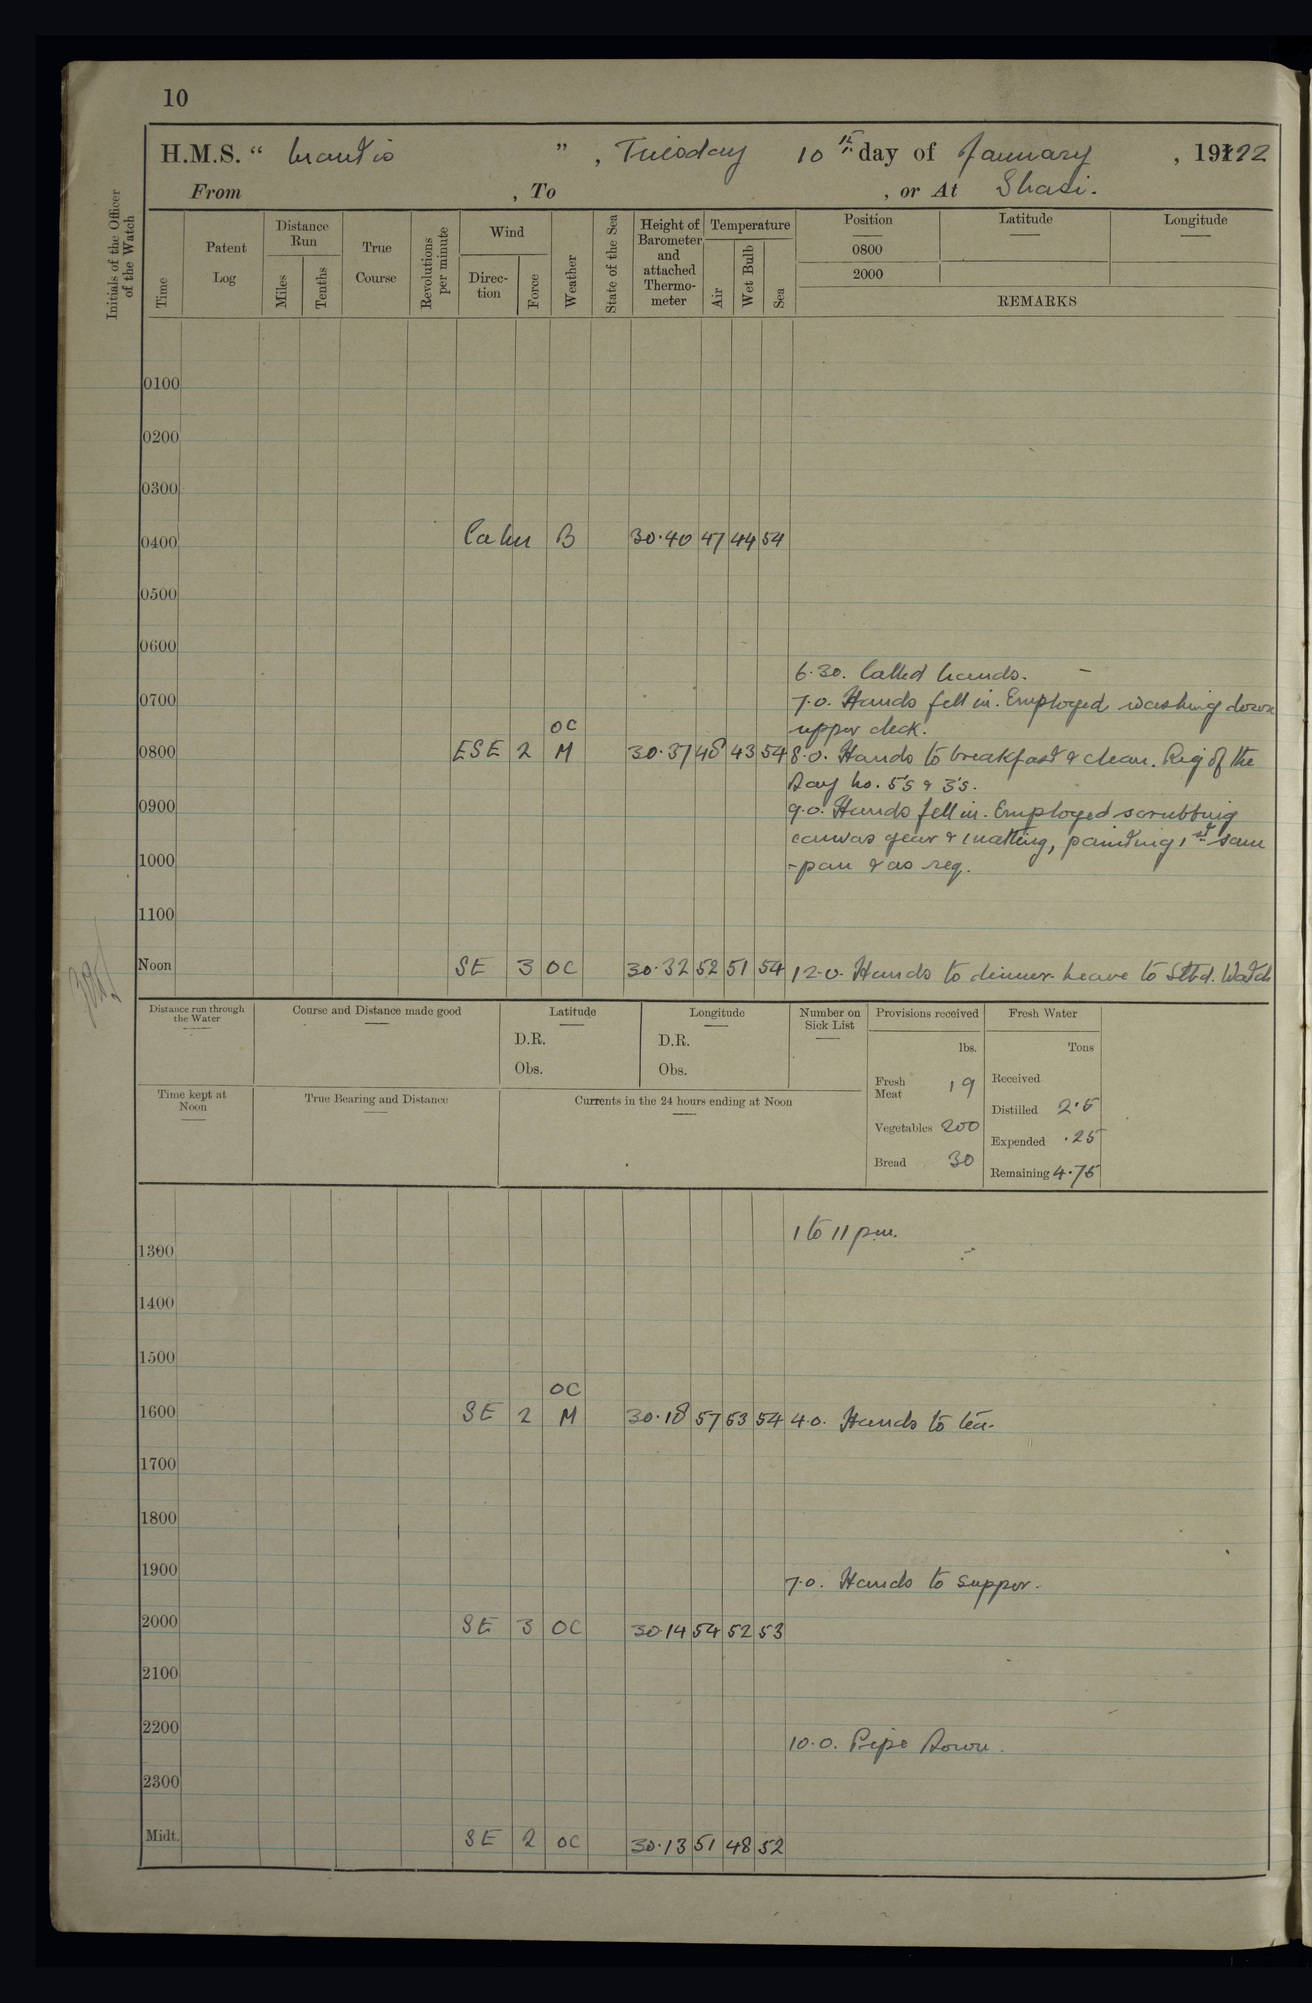 10
H.M.S. " Mantis ", Tuesday 10th day of January, 1922
From , To , or At Shasi.
Initials of the Officer of the Watch
Time
Patent Log
Distance Run
Miles
Tenths
True Course
Revolutions per minute
Wind
Direction
Force
Weather
State of the Sea
Height of Barometer and attached Thermometer
Temperature
Air
Wet Bulb
Sea
Position
0800
2000
Latitude
Longitude
REMARKS
0100
0200
0300
0400 Calm B 30.40 47 44 54
0500
0600
6.30. Called hands.
0700 7.0. Hands fell in. Employed washing down
OC upper deck.
0800 ESE 2 M 30.37 48 43 54 8.0. Hands to breakfast & clean. Rig of the
Day No. 5's & 3's.
0900 9.0. Hands fell in. Employed scrubbing
canvas gear & matting, painting 1st sam
1000 -pan & as req.
1100
Noon SE 3 OC 30.32 52 51 54 12.0. Hands to dinner. Leave to Stbd. Watch
Distance run through the Water
Course and Distance made good
Latitude
D.R.
Obs.
Longitude
D.R.
Obs.
Number on Sick List
Provisions received
lbs.
Fresh Meat 19
Vegetables 200
Bread 30
Fresh Water
Tons
Received
Distilled 2.5
Expended .25
Remaining 4.75
Time kept at Noon
True Bearing and Distance
Currents in the 24 hours ending at Noon
1 to 11 pm.
1300
1400
1500
OC
1600 SE 2 M 30.18 57 53 54 4.0. Hands to tea.
1700
1800
1900 7.0. Hands to supper.
2000 SE 3 OC 30.14 54 52 53
2100
2200 10.0. Pipe Down.
2300
Midt. SE 2 OC 30.13 51 48 52